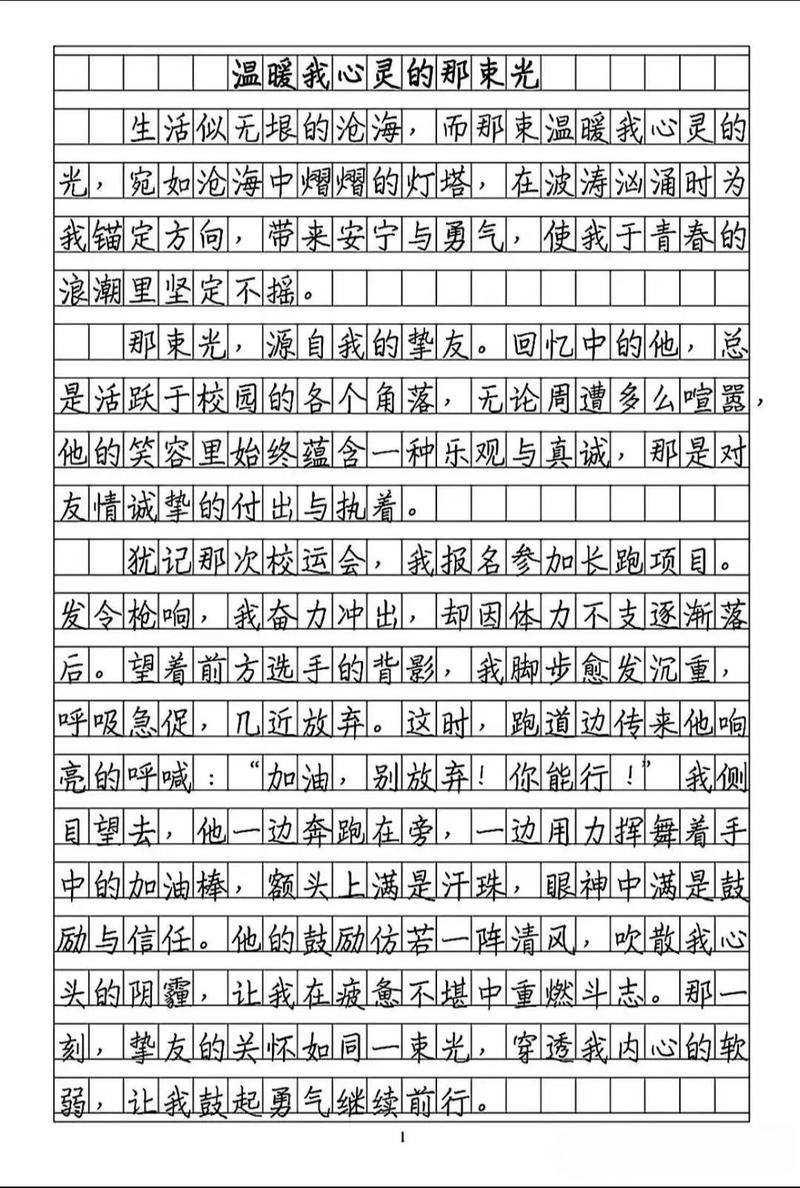 温暖我心灵的那束光
生活似无垠的沧海，而那束温暖我心灵的
光，宛如沧海中熠熠的灯塔，在波涛汹涌时为
我锚定方向，带来安宁与勇气，使我于青春的
浪潮里坚定不摇。
那束光，源自我的挚友。回忆中的他，总
是活跃于校园的各个角落，无论周遭多么喧嚣，
他的笑容里始终蕴含一种乐观与真诚，那是对
友情诚挚的付出与执着。
犹记那次校运会，我报名参加长跑项目。
发令枪响，我奋力冲出，却因体力不支逐渐落
后。望着前方选手的背影，我脚步愈发沉重，
呼吸急促，几近放弃。这时，跑道边传来他响
亮的呼喊：“加油，别放弃！你能行！”我侧
目望去，他一边奔跑在旁，一边用力挥舞着手
中的加油棒，额头上满是汗珠，眼神中满是鼓
励与信任。他的鼓励仿若一阵清风，吹散我心
头的阴霾，让我在疲惫不堪中重燃斗志。那一
刻，挚友的关怀如同一束光，穿透我内心的软
弱，让我鼓起勇气继续前行。
1